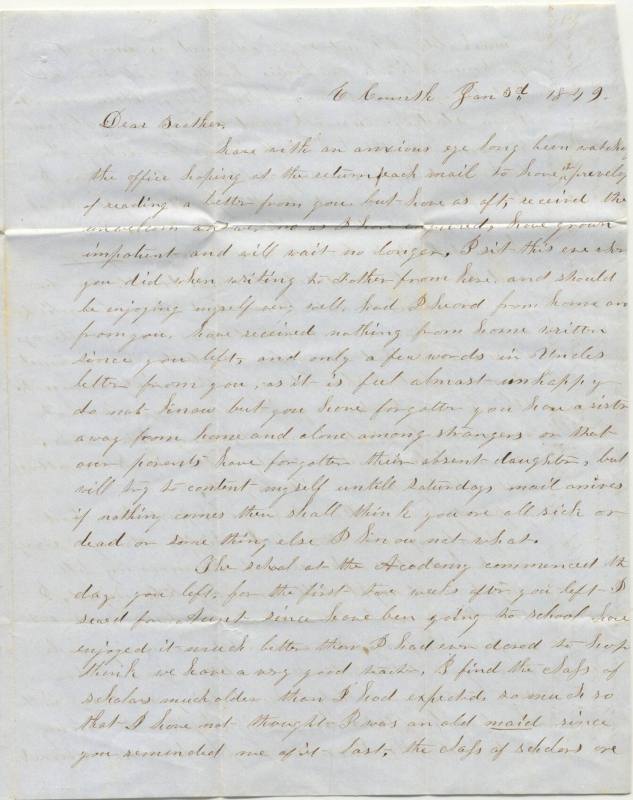 E Jan 3d, 1849.
Dear Brother,
have with an anxious eye long been watching
the office hoping at the return each mail to have the
of reading a letter from you but have as oft received the
answer no as I have have grown
impatient and will wait no longer, I sit this eve
you did when writing to Father from here, and should
be enjoying myself very well, had I heard from home or
from you, have received nothing from home written
since you left, and only a few words in Uncles
letter from you, as it is feel almost unhappy
do not know but you have forgotten you have a sister
away from home and alone among strangers or that
our parents have forgotten their absent daughter, but
will try to content myself untill Saturdays mail arrives
if nothing comes then shall think you are all sick or
dead or some thing else I know not what.
The school at the Academy commenced the
day you left, for the first two weeks after you left I
sewed for Aunt since have ben going to school have
enjoyed it much better than I had ever dared to hope
think we have a very good I find the class of
scholars much older than I had expected so much so
that I have not thought I was an old maid since
you reminded me of it last, the class of scholars are